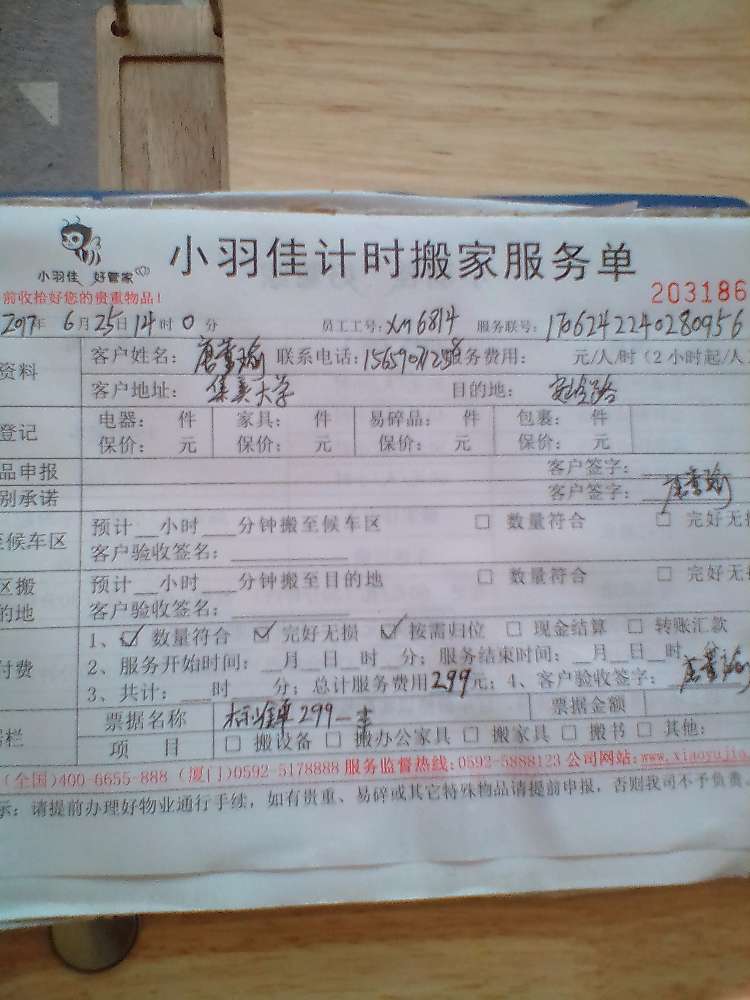 小羽佳 好管家
小羽佳计时搬家服务单
前收拾好您的贵重物品！
203186
2017年 6月25日14时0分 员工工号：XM6814 服务联号：1706242240280956
资料 客户姓名： 联系电话： 务费用： 元/人/时（2小时起/人
客户地址：集美大学 目的地：
登记 电器： 件 家具： 件 易碎品： 件 包裹： 件
保价： 元 保价： 元 保价： 元 保价： 元
品申报 客户签字：
别承诺 客户签字：
候车区 预计__小时___分钟搬至候车区 □ 数量符合 □ 完好无损
客户验收签名：
区搬 预计__小时___分钟搬至目的地 □ 数量符合 □ 完好无损
的地 客户验收签名：
付费 1、☑ 数量符合 ☑ 完好无损 ☑ 按需归位 □ 现金结算 □ 转账汇款
2、服务开始时间：__月__日__时__分；服务结束时间：__月__日__时
3、共计：___时 分；总计服务费用299元；4、客户验收签字：
栏 票据名称 标准单299一车 票据金额
项 目 □ 搬设备 □ 搬办公家具 □ 搬家具 □ 搬书 □ 其他：
(全国)400-6655-888 (厦门)0592-5178888 服务监督热线：0592-5888123 公司网站：www.xiaoyujia
示：请提前办理好物业通行手续，如有贵重、易碎或其它特殊物品请提前申报，否则我司不予负责